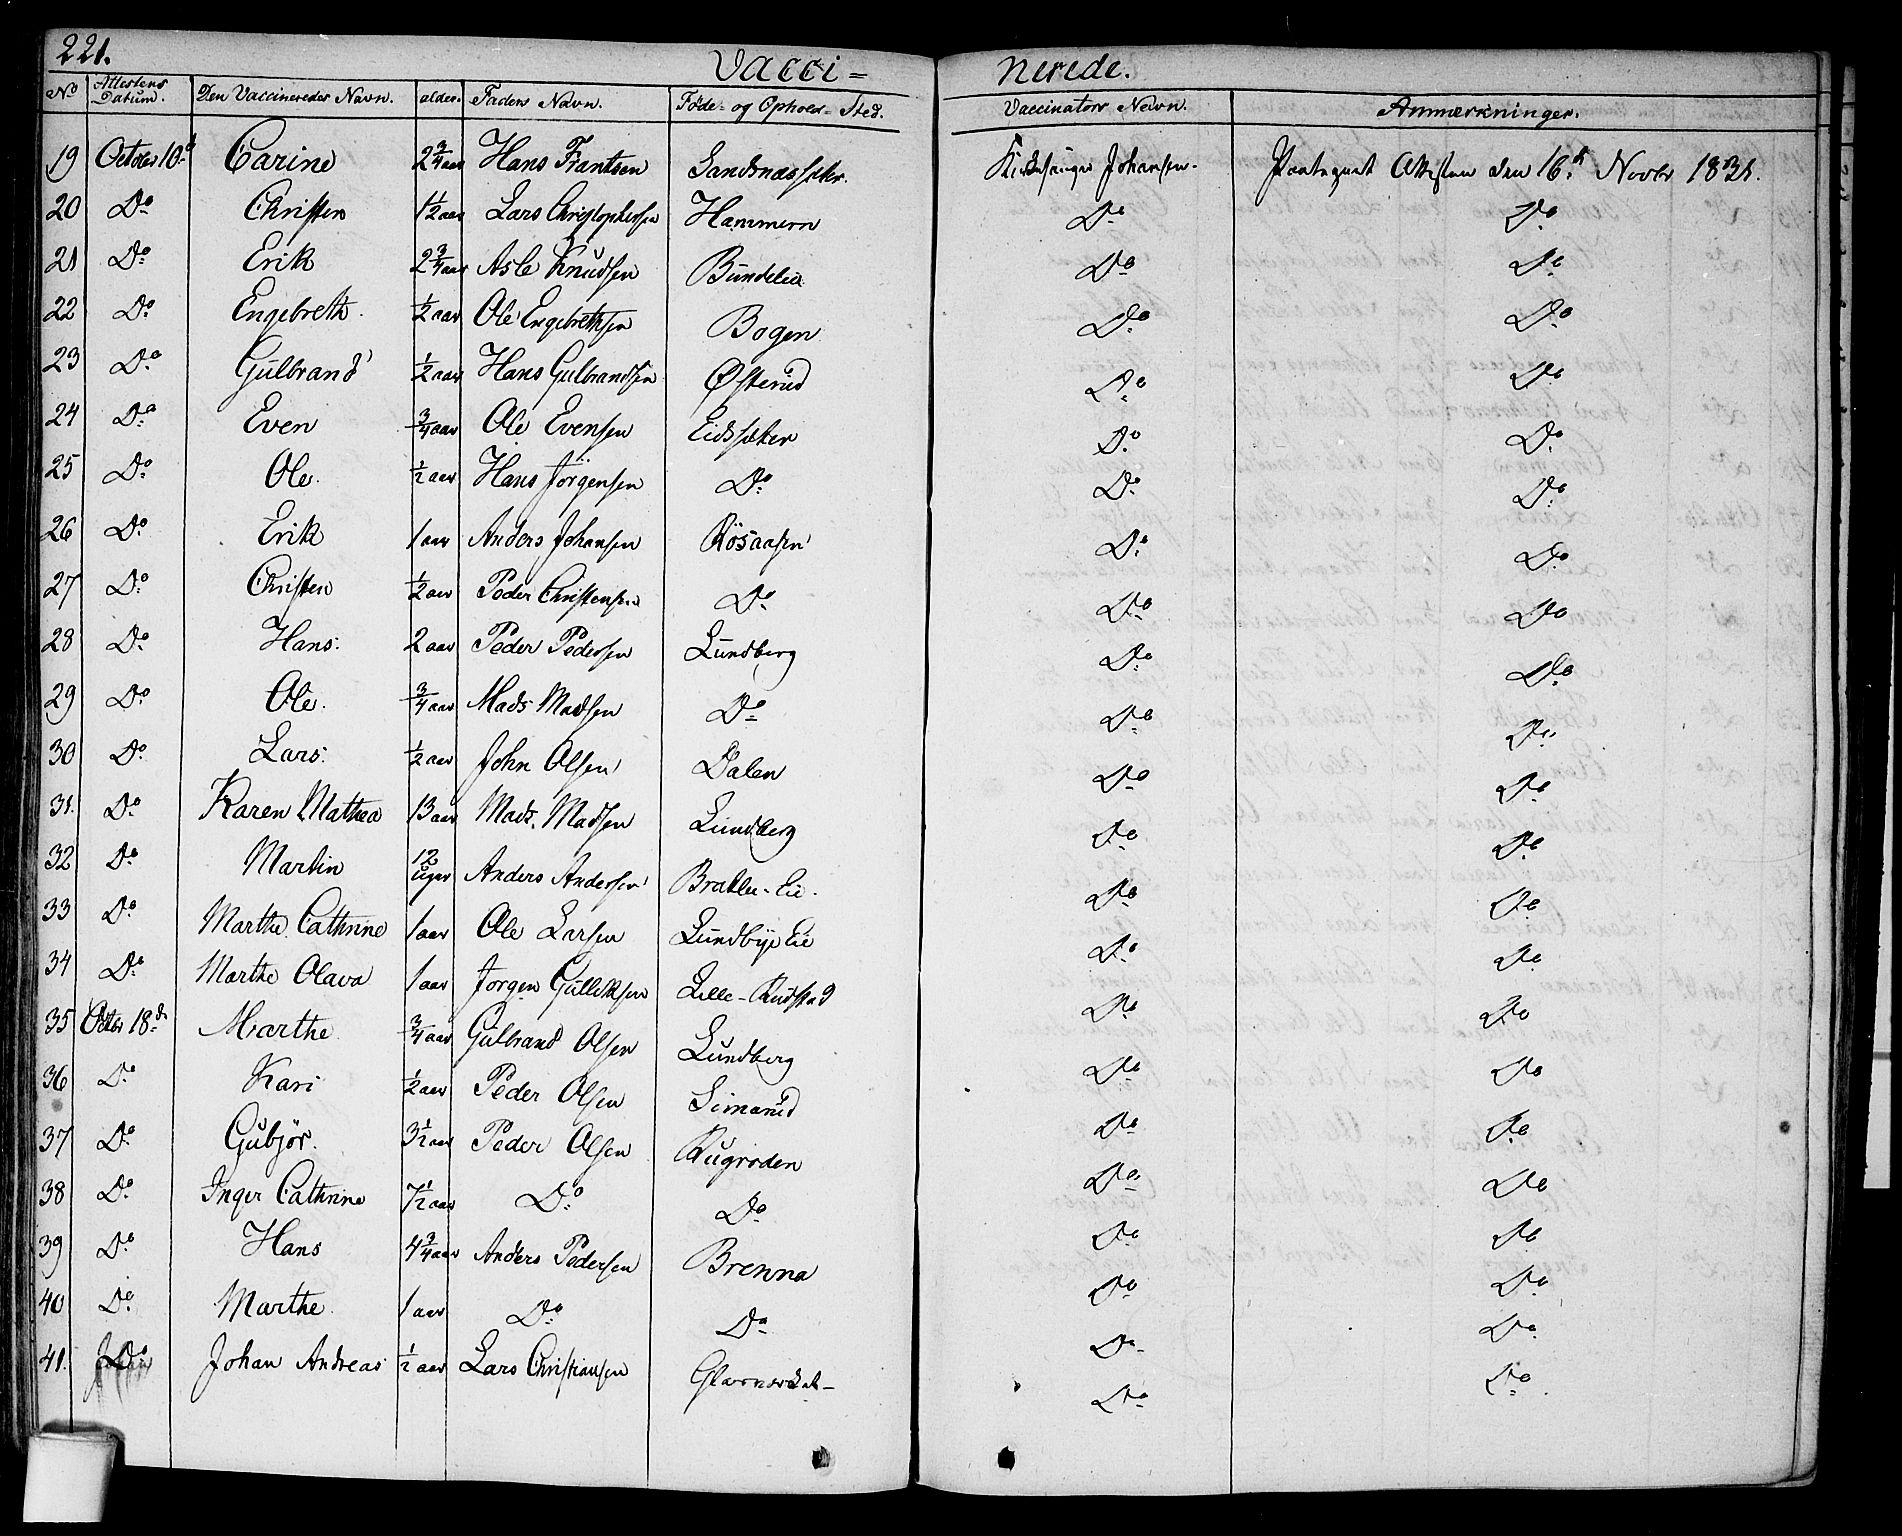 221. Vacci= nerede.
No Attestens Datum. Den Vaccineredes Navn. alder. Faders Navn. Føde- og Ophold-Sted. Vaccinators Navn. Anmærkninger.
19 October 10d Carine 2 3/4 aar Hans Frantsen Sandnæssæter. Kirkesanger Johansen. Attesten den 16d Novbr 1831.
20 Do Christen 1 1/2 aar Lars Christophersen Hammern Do Do
21 Do Erik 2 3/4 aar Asle Knudsen Bundelia Do Do
22 Do Engebreth 1/2 aar Ole Engebrethsen Bogen Do Do
23 Do Gulbrand 1/2 aar Hans Gulbrandsen Østerud Do Do
24 Do Even 3/4 aar Ole Evensen Eidssæter Do Do
25 Do Ole 1/2 aar Hans Jörgensen Do Do Do
26 Do Erik 1 aar Anders Johansen Rösaasen Do Do
27 Do Christen 1/2 aar Peder Christensen Do Do Do
28 Do Hans 2 aar Peder Pedersen Lundberg Do Do
29 Do Ole 3/4 aar Mads Madsen Do Do Do
30 Do Lars 1/2 aar John Olsen Dalen Do Do
31. Do Karen Mathea 13 aar Mads Madsen Lundberg Do Do
32 Do Martin 12 uger Anders Andersen Eie. Do Do
33 Do Marthe Cathrine 1 aar Ole Larsen Lundbye Eie Do Do
34 Do Marthe Olava 1 aar Jorgen Gulliksen Lille-Rudstad Do Do
35 Octbr 18d Marthe 3/4 aar Gulbrand Olsen Lundberg Do Do
36 Do Kari 1/2 aar Peder Olsen Simarud Do Do
37 Do Gubjör. 3 1/2 aar Peder Olsen Rugroden Do Do
38 Do Inger Cathrine 7 1/2 aar Do Do Do Do
39 Do Hans 4 3/4 aar Anders Pedersen Brenna Do Do
40 Do Marthe 1 aar Do Do Do Do
41. Do Johan Andreas 1/2 aar Lars Christiansen Do Do